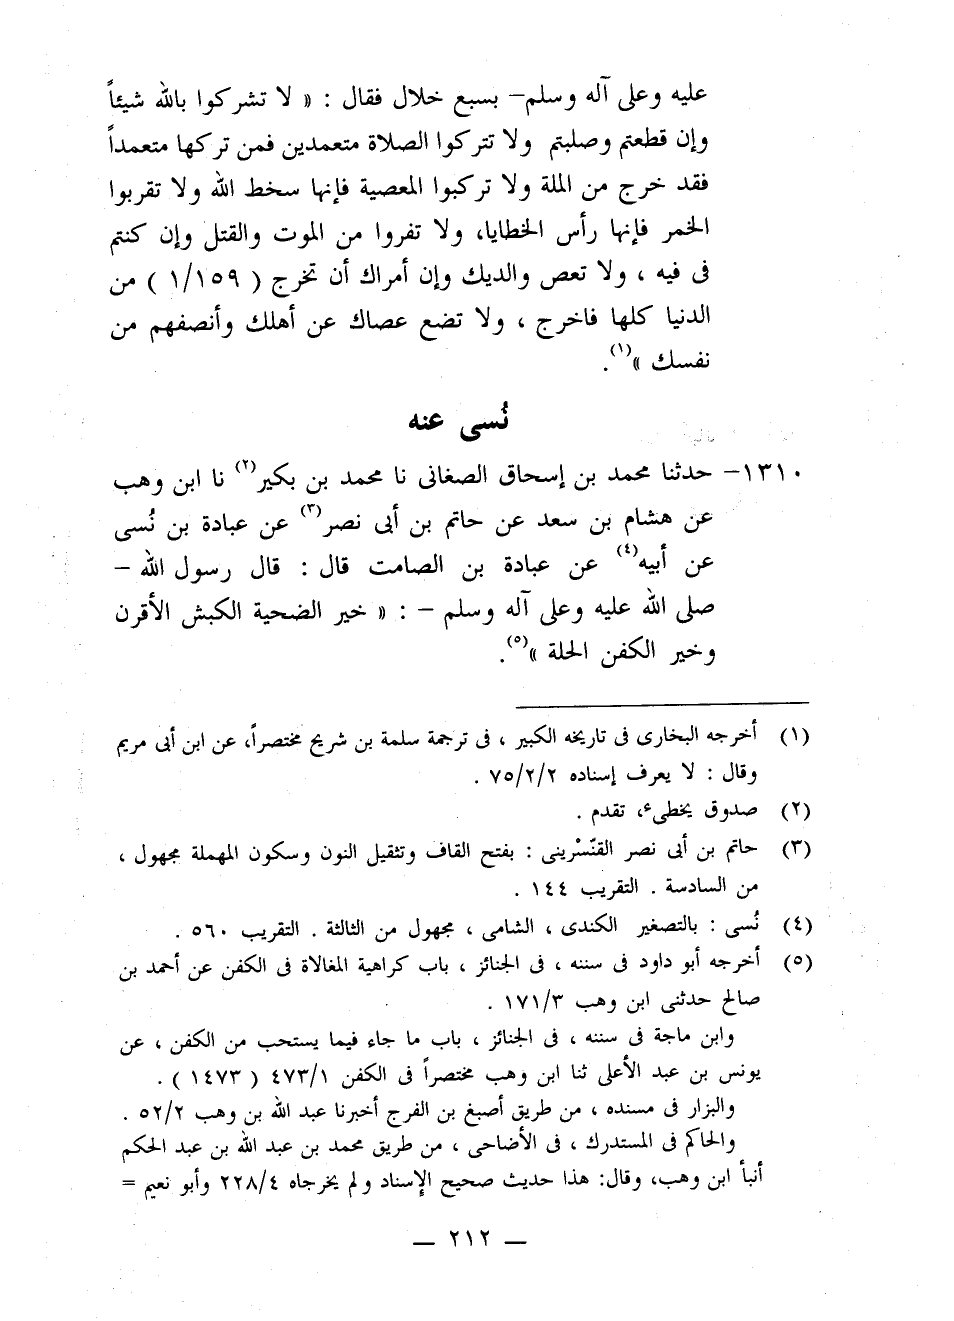 عليه وعلى آله وسلم– بسبع خلال فقال : « لا تشركوا بالله شيئاً
وإن قطعتم وصلبتم ولا تتركوا الصلاة متعمدين فمن تركها متعمداً
فقد خرج من الملة ولا تركبوا المعصية فإنها سخط الله ولا تقربوا
الخمر فإنها رأس الخطايا، ولا تفروا من الموت والقتل وإن كنتم
فى فيه ، ولا تعص والديك وإن أمراك أن تخرج ( ١/١٥٩ ) من
الدنيا كلها فاخرج ، ولا تضع عصاك عن أهلك وأنصفهم من
نفسك »(١).
نُسى عنه
١٣١٠– حدثنا محمد بن إسحاق الصغانى نا محمد بن بكير(٢) نا ابن وهب
عن هشام بن سعد عن حاتم بن أبى نصر(٣) عن عبادة بن نُسى
عن أبيه(٤) عن عبادة بن الصامت قال : قال رسول الله –
صلى الله عليه وعلى آله وسلم – : « خير الضحية الكبش الأقرن
وخير الكفن الحلة »(٥).
(١) أخرجه البخارى فى تاريخه الكبير ، فى ترجمة سلمة بن شريح مختصراً، عن ابن أبى مريم
وقال : لا يعرف إسناده ٧٥/٢/٢ .
(٢) صدوق يخطىء، تقدم .
(٣) حاتم بن أبى نصر القنّسْرينى : بفتح القاف وتثقيل النون وسكون المهملة مجهول ،
من السادسة . التقريب ١٤٤ .
(٤) نُسى : بالتصغير الكندى ، الشامى ، مجهول من الثالثة . التقريب ٥٦٠ .
(٥) أخرجه أبو داود فى سننه ، فى الجنائز ، باب كراهية المغالاة فى الكفن عن أحمد بن
صالح حدثنى ابن وهب ١٧١/٣ .
وابن ماجة فى سننه ، فى الجنائز ، باب ما جاء فيما يستحب من الكفن ، عن
يونس بن عبد الأعلى ثنا ابن وهب مختصراً فى الكفن ٤٧٣/١ ( ١٤٧٣ ) .
والبزار فى مسنده ، من طريق أصبغ بن الفرج أخبرنا عبد الله بن وهب ٥٢/٢ .
والحاكم فى المستدرك ، فى الأضاحى ، من طريق محمد بن عبد الله بن عبد الحكم
أنبأ ابن وهب، وقال: هذا حديث صحيح الإسناد ولم يخرجاه ٢٢٨/٤ وأبو نعيم =
— ٢١٢ —